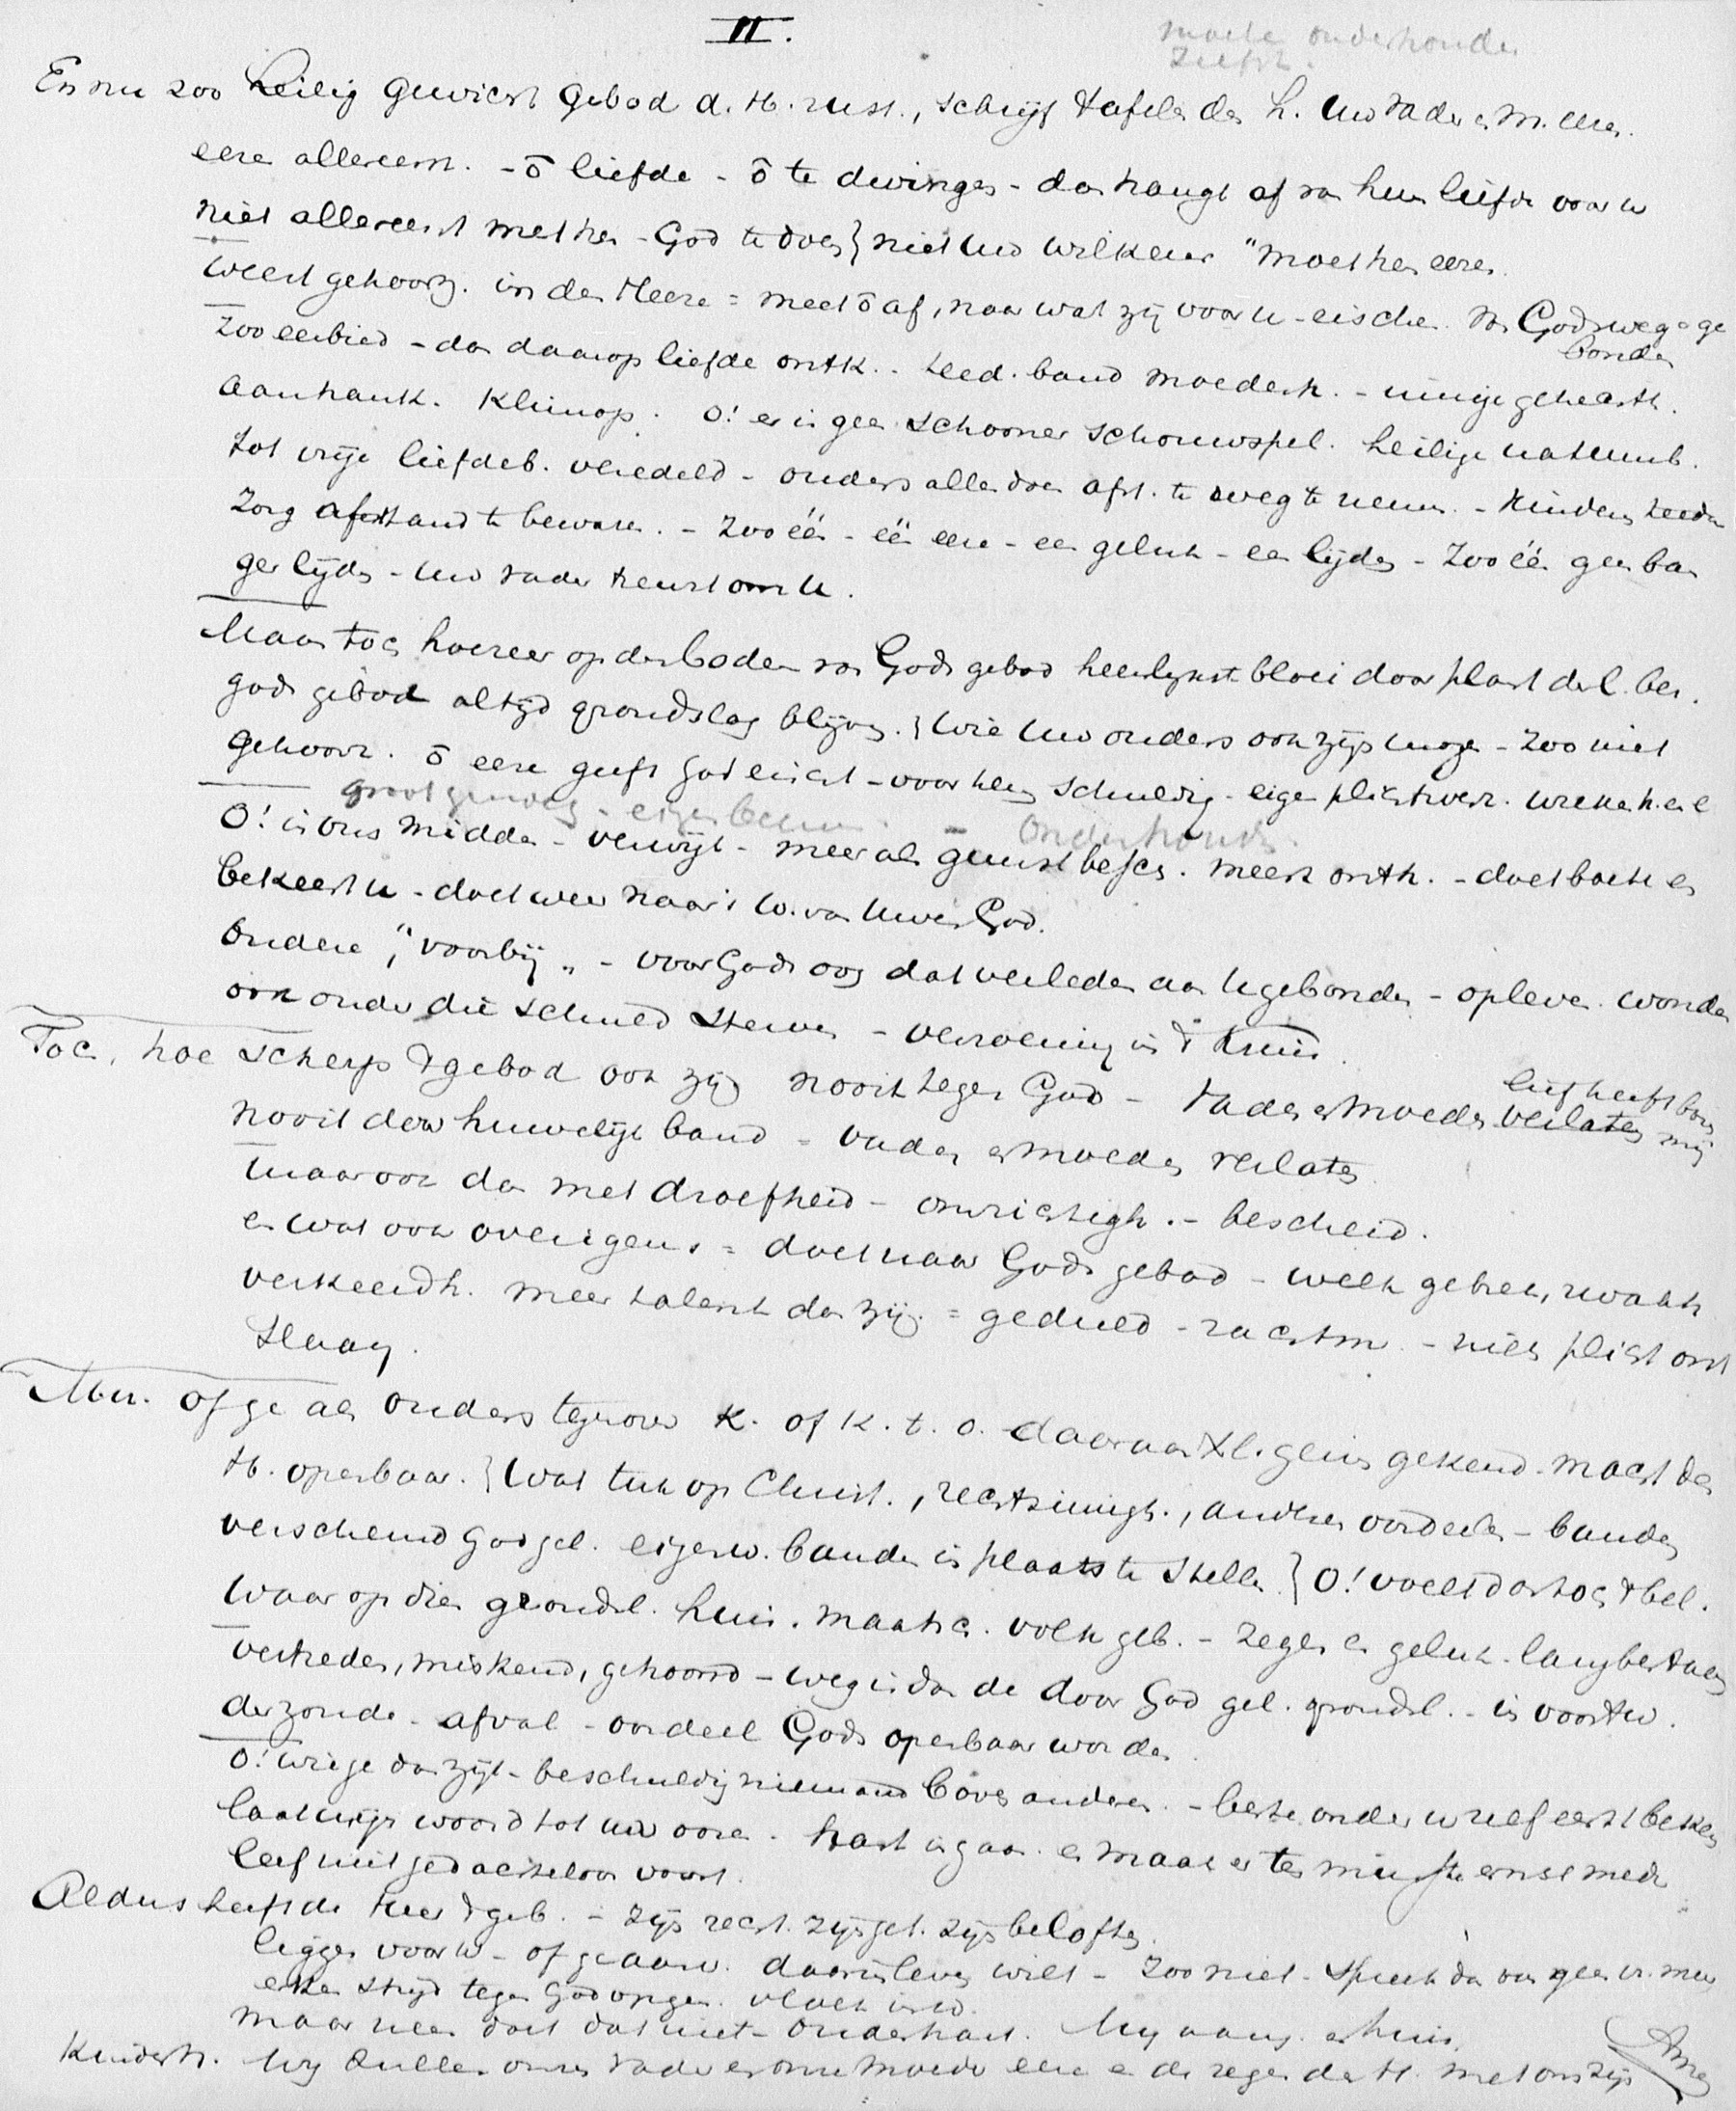 II.
moete onderhouden
En nu zoo heilig gewicht Gebod d. H. rust., schrijf tafelen des h. Uw vader en M. eere.
eere allereerst. - ō liefde - ō te dwingen - dan hangt af van hun liefde voor u
niet allereerst met hen - God te doen} niet uw wilkeur "moet hen eeren.
Weest gehoorz. in den Heere = meet ō af, naar wat zij voor u - eischen. Van Godswege = ge
bonden
Zoo eerbied - dan daarop liefde ontk. - teed. band moederh. - innige gehechth.
aanhank. Klimop. O! er is geen schooner schouwspel. heilige natuurb.
tot vrije liefdeb. veredeld - ouders alles doen afst. te weg te nemen. - Kinderen teedere
Zorg afstand te bewaren. - Zoo één - één eere - een geluk - een lijden - Zoo één geen ban
ger lijden - Uw vader treurt om U.
Maar toch hoezeer op den bodem van Gods gebod heerlijkst bloei door plant der l. ber.
gods gebod altijd grondslag blijven. } Wie uw ouders ook zijn mogen - Zoo niet
gehoorz. ō eere geeft God eischt - voor hen schuldig - eigen plichtverz.
grootgenoeg - eigen - Onderhoud.
O! in ons midden - verwijt - meer als gunst besch. meest onth. - doet boete en
bekeert u - doet weer naar 't W. van Uwen God.
Andere, "voorbij" - voor Gods oog dat verleden aan u gebonden - opleven. wonden
ook onder die schuld sterven - verzoening in 't kruis.
Toch, hoe scherp 't gebod ook zij nooit tegen God - Vader en Moeder verlaten
lief heeft boven mij
nooit den huwelijk band = Vader en moeder verlaten
maar ook dan met droefheid - omzichtigh. - bescheid.
en wat ook overigens = doet naar Gods gebod - welk gebrek, zwakh.
verkeerdh. meer talent dan zij = geduld - zachtm. - niets plicht ont
slaan.
M. of ge als ouders tegenover K. of K. t. o. daaraan gekend. macht des
H. openbaar. } Wat tuk op Christ., rechtzinnigh., anderen oordeelen - banden
verscheurd God gel. eigenw. banden in plaats te stellen } O! voelt dan toch 't bel.
Waar op dien grondsl. huis. maatsch. volk geb. - Zegen en geluk. lang bestaan
vertreden, miskend, gehoond - weg is dan de door God gel. grondsl. - is voortw.
der zonde - afval - oordeel Gods openbaar worden.
O! wie ge dan zijt - beschuldig niemand boven anderen. - beste onder u zelf eerst beken
laat mijn woord tot uw ooren. hart ingaan. en maak er ten minste ernst mede
leef niet gedachteloos voort.
Aldus heeft de Heer 't geb. - zijn recht. zijn get. zijn beloften.
liggen voor u - of ge aanv. daarin leven wilt - Zoo niet - spreek dan van geen vr. meer
erken strijd tegen God vloek
maar neen doet dat niet - Onderhoud. huis.
Kinderk. Wij zullen onzen vader en onze moeder eere en de zegen des H. met ons zijn
Amen